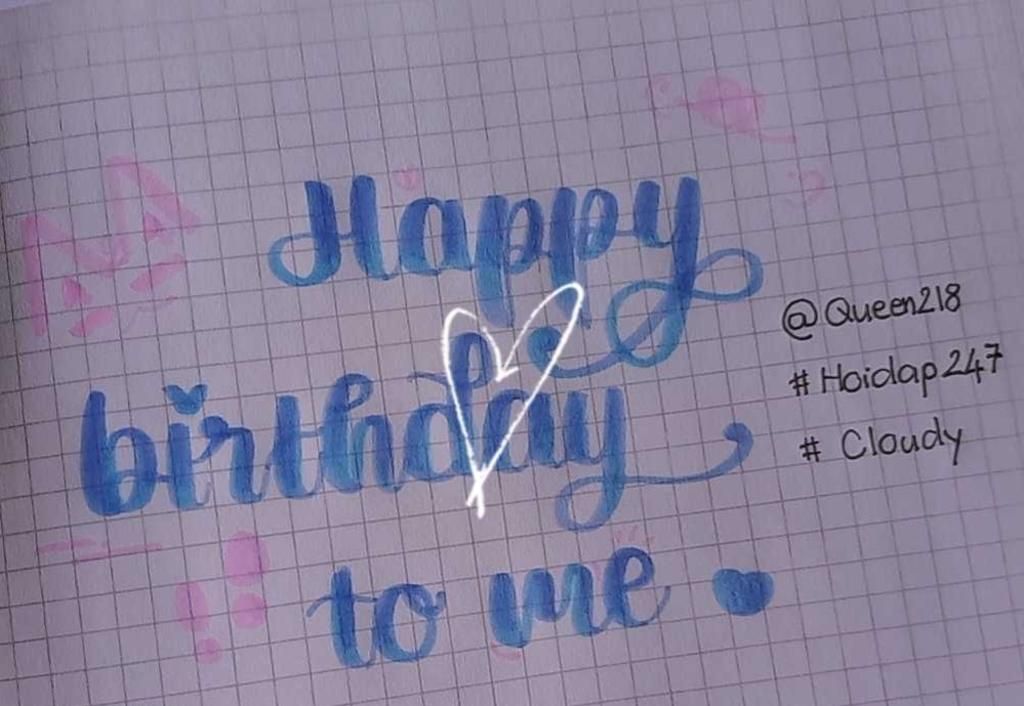 Happy
birthday
to me
@Queen218
#Hoidap247
# Cloudy